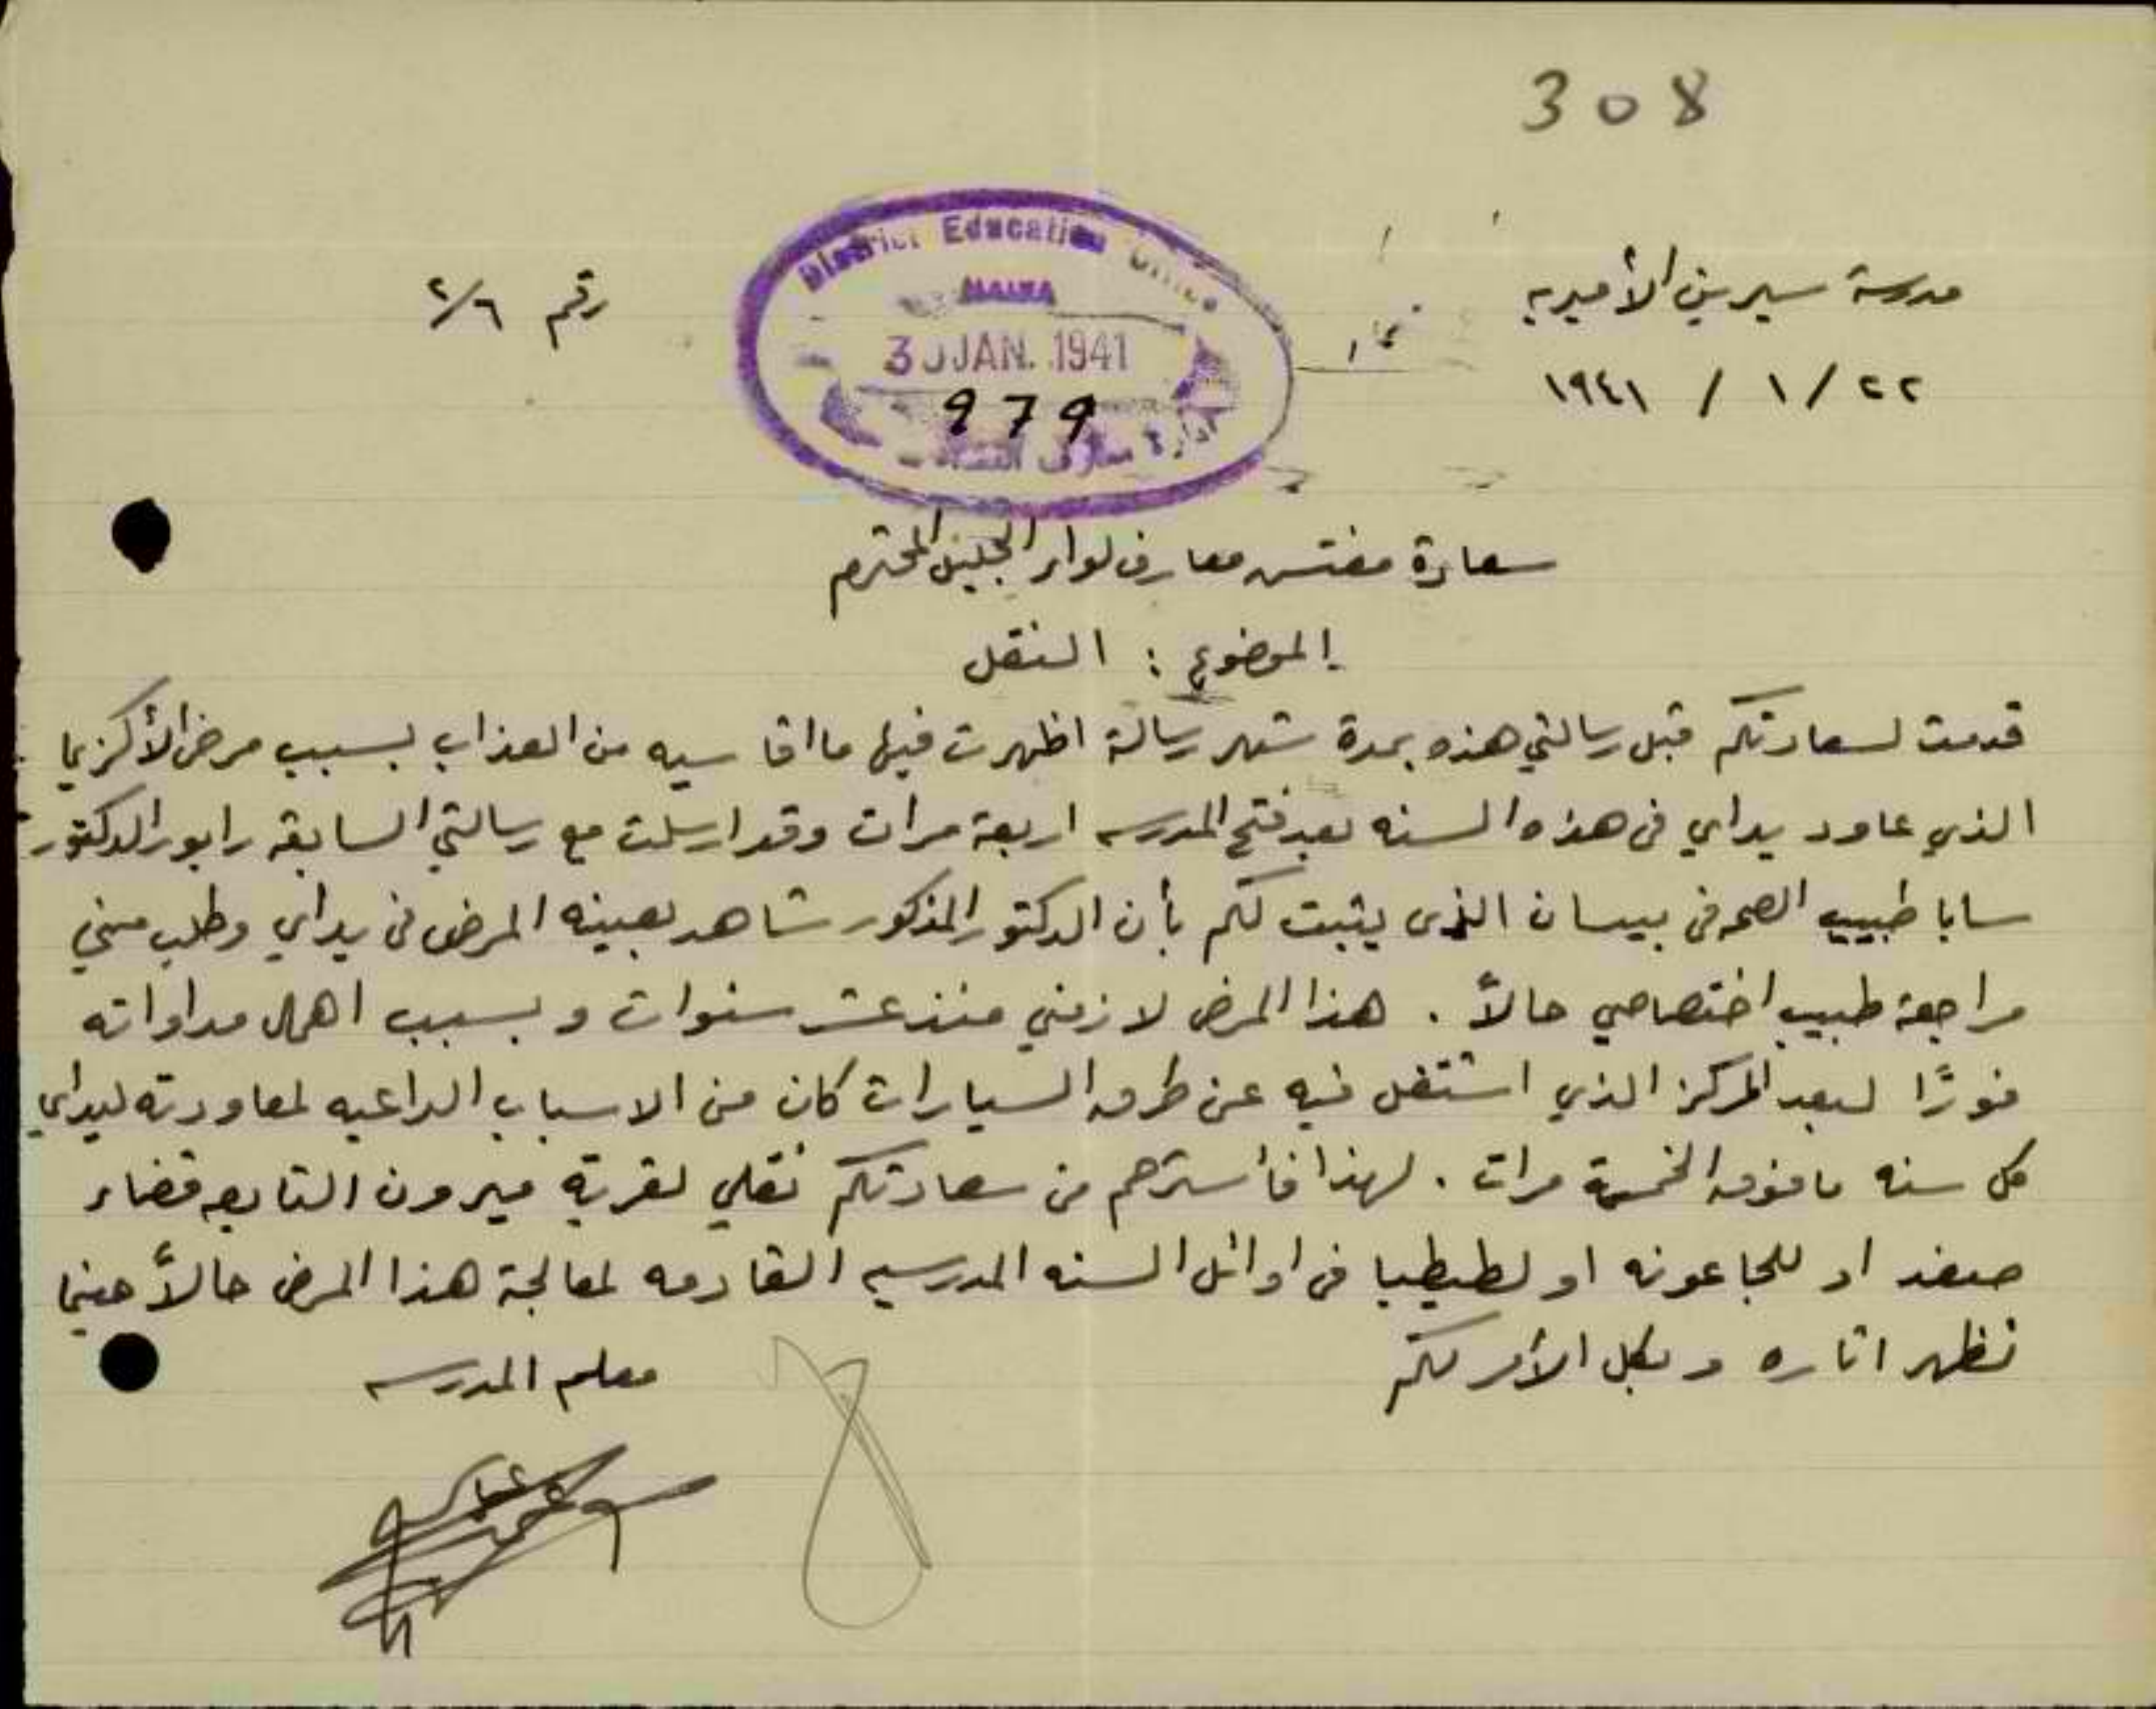 308
مدرسة سيرين الأميريه
رقم ٢/٦
٢٢ / ١ / ١٩٤١
District Education Office
30 JAN. 1941
979
ادارة معارف
سعادة مفتش معارف لواء الجليل المحترم
الموضوع : النقل
قدمت لسعادتكم قبل رسالتي هذه بمدة شهر رسالة اظهرت فيها ما اقاسيه من العذاب بسبب مرض الأكزيما
الذي عاود يداي في هذه السنه بعد فتح المدرسه اربعة مرات وقد ارسلت مع رسالتي السابقه رابور الدكتور
سابا طبيب الصحه في بيسان الذى يثبت لكم بأن الدكتور المذكور شاهد بعينه المرض في يداي وطلب مني
مراجعة طبيب اختصاصي حالاً . هذا المرض لازمني منذ عشر سنوات وبسبب اهمال مداواته
فورًا لبعد المركز الذي اشتغل فيه عن طرق السيارات كان من الاسباب الداعيه لمعاودته ليداي
كل سنه ما فوق الخمسة مرات . لهذا فأسترحم من سعادتكم نقلي لقرية ميرون التابعه قضاء
صفد او للجاعونه او لطيطبا في اوائل السنه المدرسيه القادمه لمعالجة هذا المرض حالاً حينما
تظهر اثاره ولكل الأمر لكم
معلم المدرسه